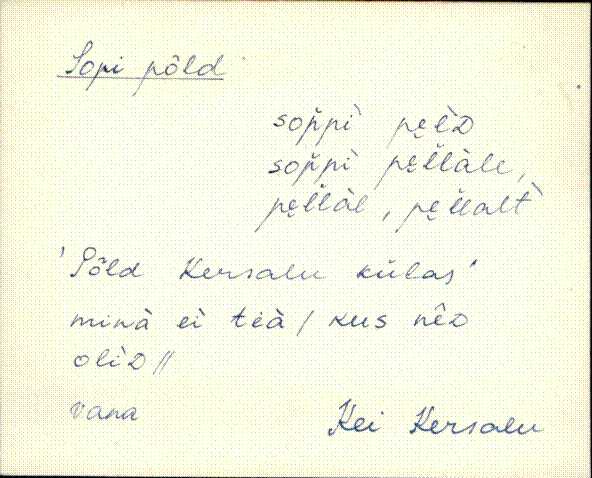 Sopi põld
sop̆pì pe̮l̀D
sop̆pì pe̮l̆làle,
pe̮l̆làl, pe̮l̆lalt̀
'Põld Kersalu külas'
minà ei teà / kus nêD
olìD //
vana
Kei Kersalu